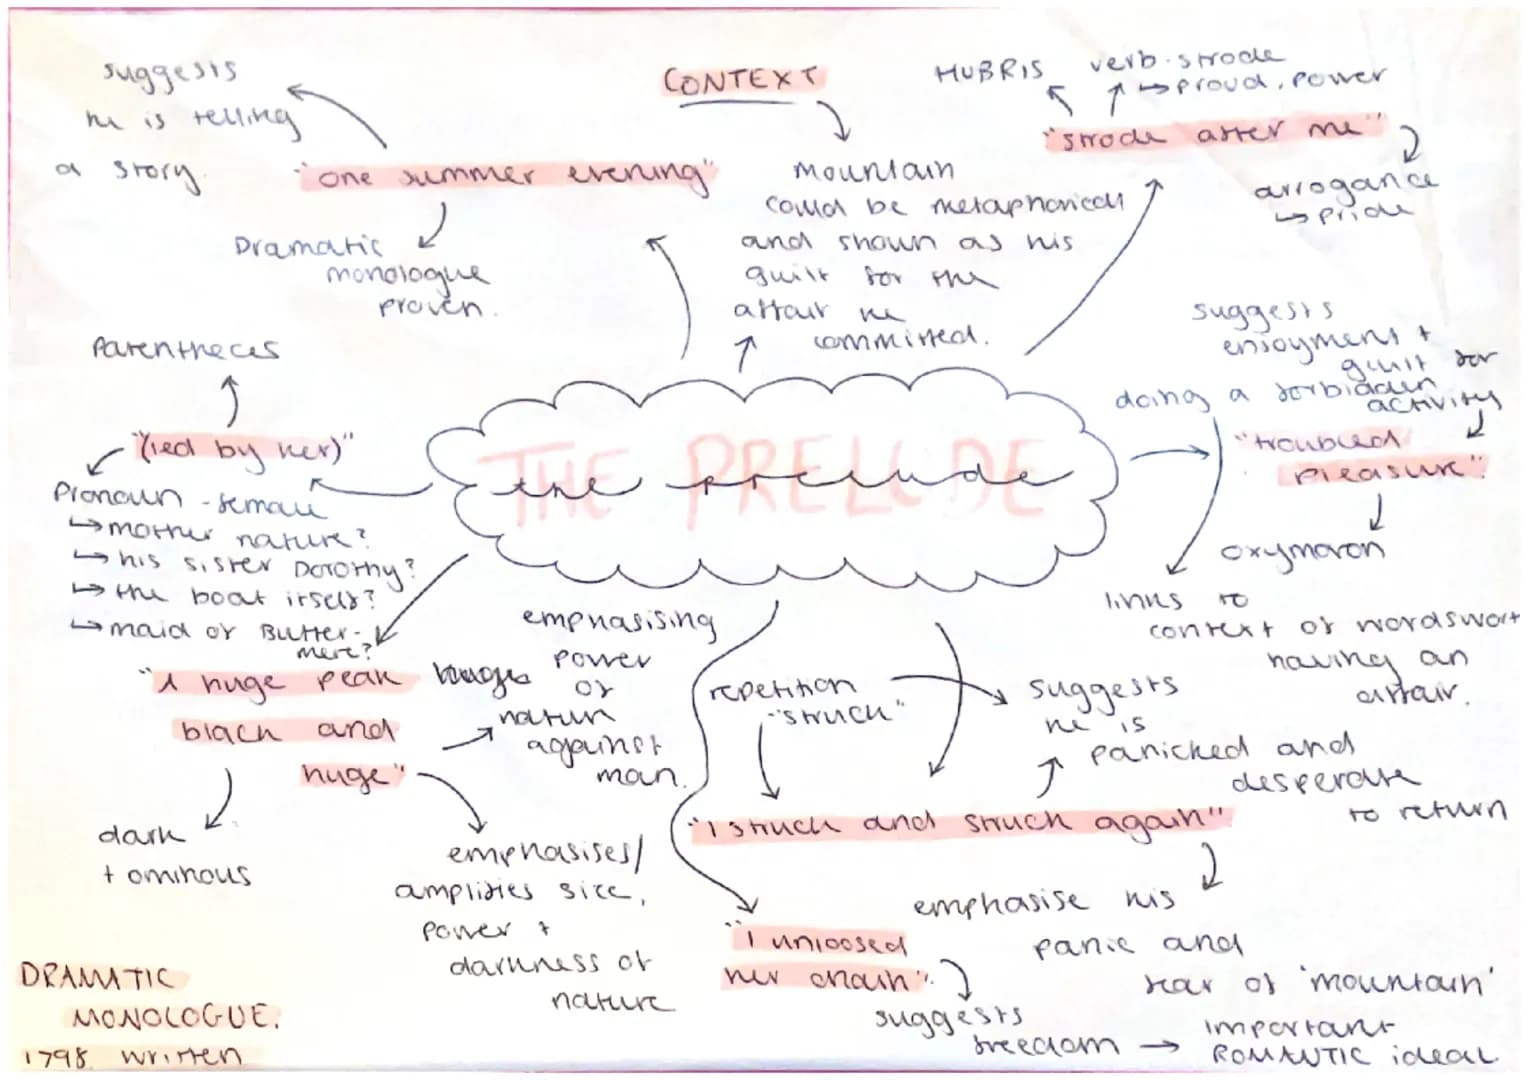 suggests
he is telling
a story.
"one summer evening"
Dramatic
monologue
proven.
CONTEXT
mountain
could be metaphorical
and shown as his
guilt for the
affair he
committed.
HUBRIS
verb - strode
↳ proud, power
"strode after me"
arrogance
↳ pride
suggests
enjoyment +
guilt for
doing a forbidden
activity
"troubled
pleasure".
oxymoron
links to
context of wordswort
having an
affair.
Parentheces
"(led by her)"
Pronoun - female
↳ mother nature?
↳ his sister Dorothy?
↳ the boat itself?
↳ maid of Butter-
mere?
THE PRELUDE
the prelude
"A huge peak
black and
huge"
dark
+ ominous
emphasising
power
of
nature
against
man.
emphasises/
amplifies size,
power +
darkness of
nature
repetition
-"struck"
suggests
he is
panicked and
desperate
to return
"I struck and struck again"
emphasise his
panic and
fear of 'mountain'
"I unloosed
her chain".
suggests
freedom → important
ROMANTIC ideal.
DRAMATIC
MONOLOGUE.
1798 written